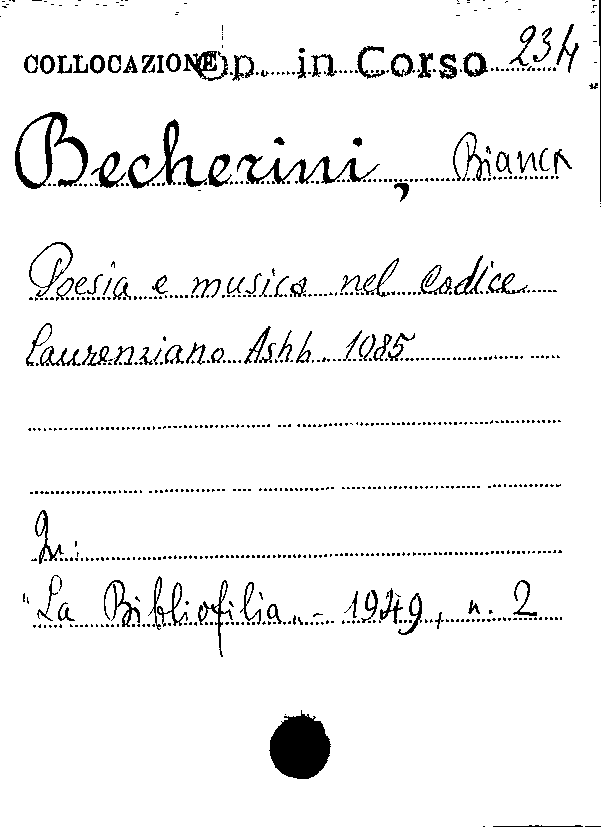 COLLOCAZIONE Op. in Corso 234
Becherini, Bianca
Poesia e musica nel Codice
Laurenziano Ashb. 1085
In:
"La Bibliofilia„ - 1949, n. 2